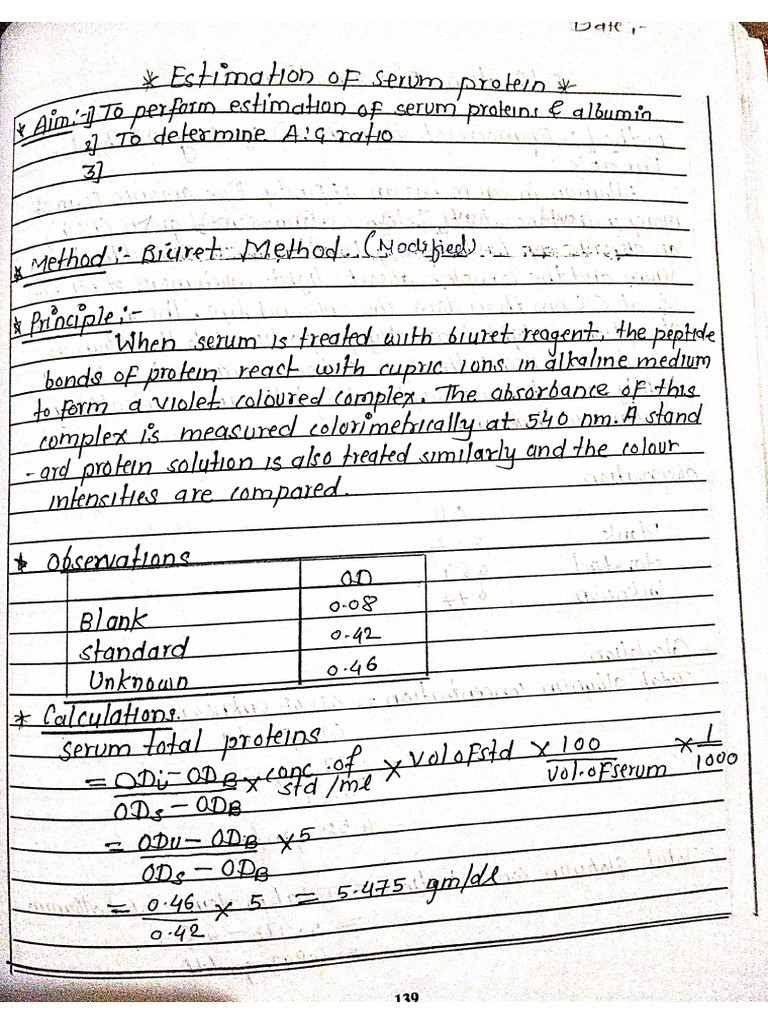 Date :-
* Estimation of serum protein *
* Aim :- 1] To perform estimation of serum proteins & albumin
2] To determine A:G ratio
3]
* Method :- Biuret Method. (Modified)
* Principle :-
When serum is treated with biuret reagent, the peptide
bonds of protein react with cupric ions in alkaline medium
to form a violet coloured complex. The absorbance of this
complex is measured colorimetrically at 540 nm. A stand
-ard protein solution is also treated similarly and the colour
intensities are compared.
* Observations
OD
Blank 0.08
standard 0.42
Unknown 0.46
* Calculations.
serum total proteins
= ODu - ODB / ODs - ODB × conc. of std/ml × Vol of std × 100 / Vol. of serum × 1 / 1000
= ODu - ODB / ODs - ODB × 5
= 0.46 / 0.42 × 5 = 5.475 gm/dl
139